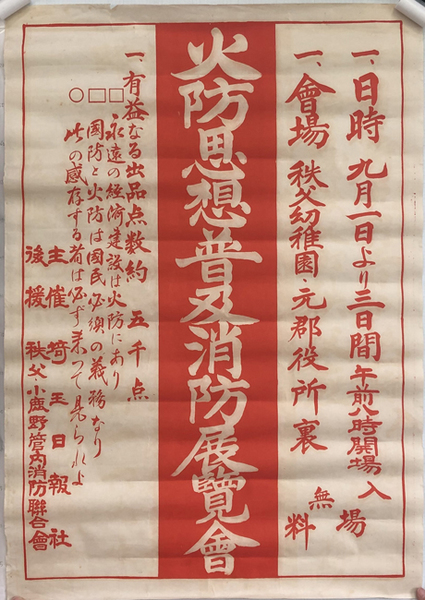 一、日時 九月一日より三日間 午前八時開場
入場無料
一、會場 秩父幼稚園・元郡役所裏
火防思想普及消防展覽會
一、有益なる出品点数約五千点
□永遠の経済建設は火防にあり
□国防と火防は国民必須の義務なり
○此の感存する者は必ず来つて見られよ
主催 埼玉日報社
後援 秩父・小鹿野管内消防聯合會